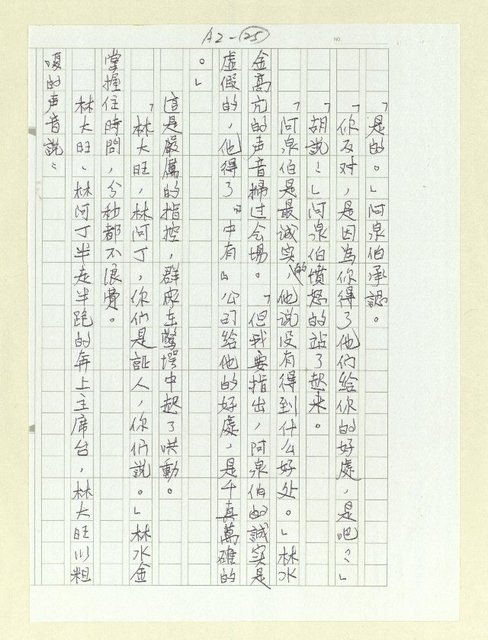 A2-125
NO.
「是的。」阿泉伯承認。
「你反对，是因為你得了他們给你的好處，是吧？」
「胡說！」阿泉伯愤怒的站了起来。
「阿泉伯是最诚实的，他說没有得到什么好处。」林水
金高亢的声音掃过会場。「但我要指出，阿泉伯的誠実是
虛假的，他得了『中有』公司給他的好處，是千真萬確的
。」
這是嚴厲的指控，群众在驚愕中起了哄動。
「林大旺，林阿丁，你們是証人，你們說。」林水金
掌握住時間，分秒都不浪費。
林大旺、林阿丁半走半跑的奔上主席台，林大旺以粗
嗄的声音說：